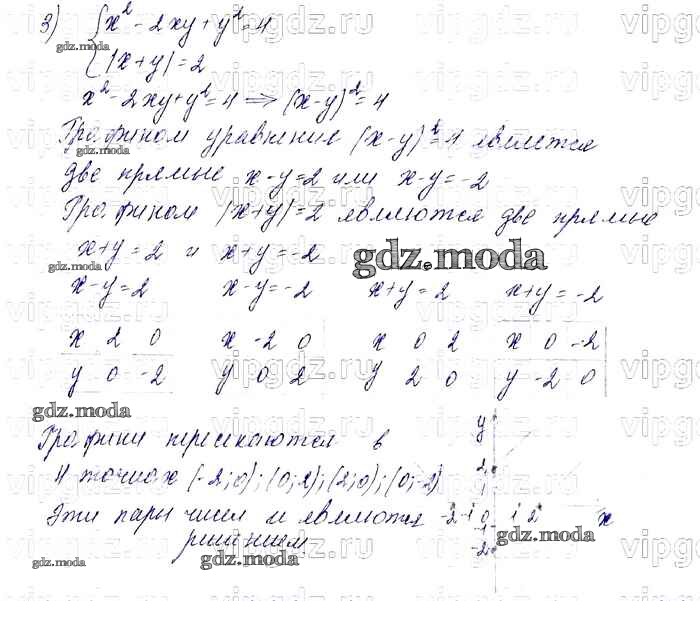 3) { x² - 2xy + y² = 4
|x+y| = 2
x² - 2xy + y² = 4 ⟹ (x-y)² = 4
Графиком уравнение (x-y)² = 4 является
две прямые x-y=2 или x-y=-2
Графиком |x+y|=2 являются две прямые
x+y=2 и x+y=-2
gdz.moda
x-y=2 x-y=-2 x+y=2 x+y=-2
x 2 0 x -2 0 x 0 2 x 0 -2
y 0 -2 y 0 2 y 2 0 y -2 0
gdz.moda
Графики пересекаются в
4 точках (-2;0); (0;2); (2;0); (0;-2)
Эти пары чисел и являются
решением
y
2
1
-2 -1 0 1 2 x
-2
gdz.moda
vipgdz.ru